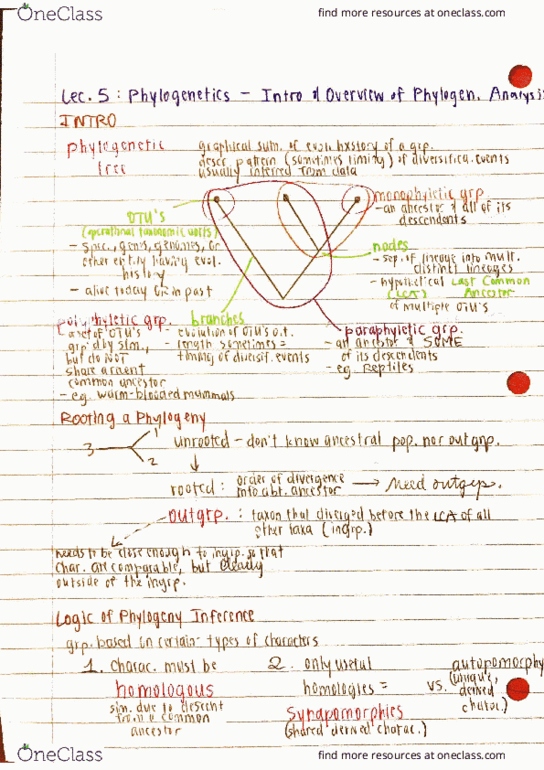 OneClass
find more resources at oneclass.com
Lec. 5 : Phylogenetics - Intro & Overview of Phylogen. Analysis
INTRO
phylogenetic tree
graphical sum. of evol. history of a grp.
descr. pattern (sometimes timing) of diversifica. events
usually inferred from data
OTU's
(operational taxonomic units)
- spec., genus, genomes, or
other entity having evol.
history
- alive today or in past
monophyletic grp
- an ancestor & all of its
descendents
nodes
- sep. of lineage into mult.
distinct lineages
- hypothetical Last Common
(LCA) Ancestor
of multiple OTU's
polyphyletic grp.
- a set of OTU's
grp'd by sim.,
but do NOT
share a recent
common ancestor
- eg. warm-blooded mammals
branches
- evolution of OTU's o.t.
- length sometimes =
timing of diversif. events
paraphyletic grp.
- an ancestor & SOME
of its descendents
- eg. Reptiles
Rooting a Phylogeny
1
3
2
unrooted - don't know ancestral pop. nor outgrp.
rooted : order of divergence
info abt. ancestor → Need outgrps.
outgrp. : taxon that diverged before the LCA of all
other taxa (ingrp.)
needs to be close enough to ingrp. so that
char. are comparable, but clearly
outside of the ingrp.
Logic of Phylogeny Inference
grp. based on certain types of characters
1. Charac. must be
homologous
sim. due to descent
from a common
ancestor
2. only useful
homologies =
synapomorphies
(shared derived charac.)
vs.
autapomorphy
(unique,
derived
charac.)
OneClass
find more resources at oneclass.com